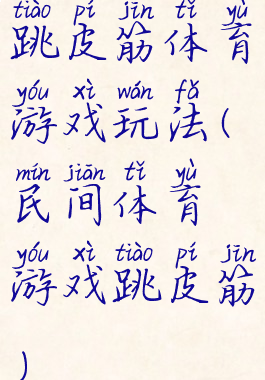 tiào pí jīn tǐ yù
跳皮筋体育
yóu xì wán fǎ
游戏玩法(
mín jiān tǐ yù
民间体育
yóu xì tiào pí jīn
游戏跳皮筋
)